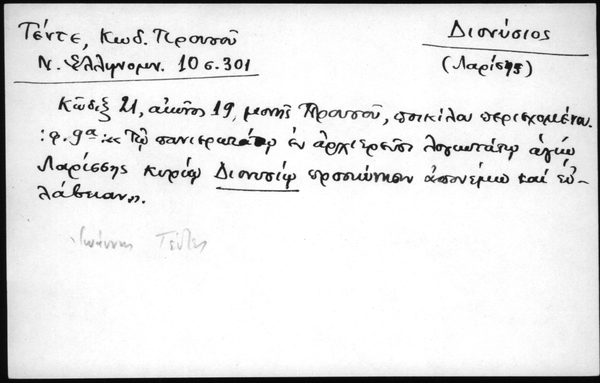 Τέντε, Κωδ. Προυσοῦ
Διονύσιος
Ν. Ἑλληνομν. 10 σ. 301
(Λαρίσης)
Κῶδιξ 21, αἰῶνος 19, μονῆς Προυσοῦ, ποικίλου περιεχομένου.
: φ. 9α :« Τῷ πανιερωτάτῳ ἐν ἀρχιερεῦσι λογιωτάτῳ ἁγίῳ
Λαρίσσης κυρίῳ Διονυσίῳ προσκύνησιν ἀπονέμω καὶ εὐ-
λάβειαν».
Ἰωάννης Τέντες